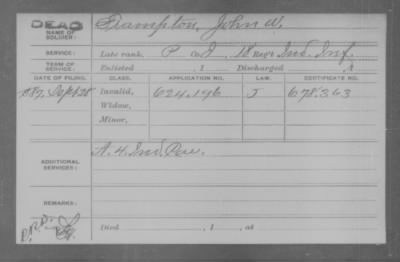 DEAD
NAME OF SOLDIER: Frampton, John W.
SERVICE: Late rank, P Co. I, 18 Reg't Ind. Inf.
TERM OF SERVICE: Enlisted , 1 Discharged , 1
DATE OF FILING. CLASS. APPLICATION NO. LAW. CERTIFICATE NO.
1887, Sept 28 Invalid, 624.196 J 678.363
Widow,
Minor,
ADDITIONAL SERVICES: A. 4. Ind. Cav.
REMARKS:
Died , 1 , at